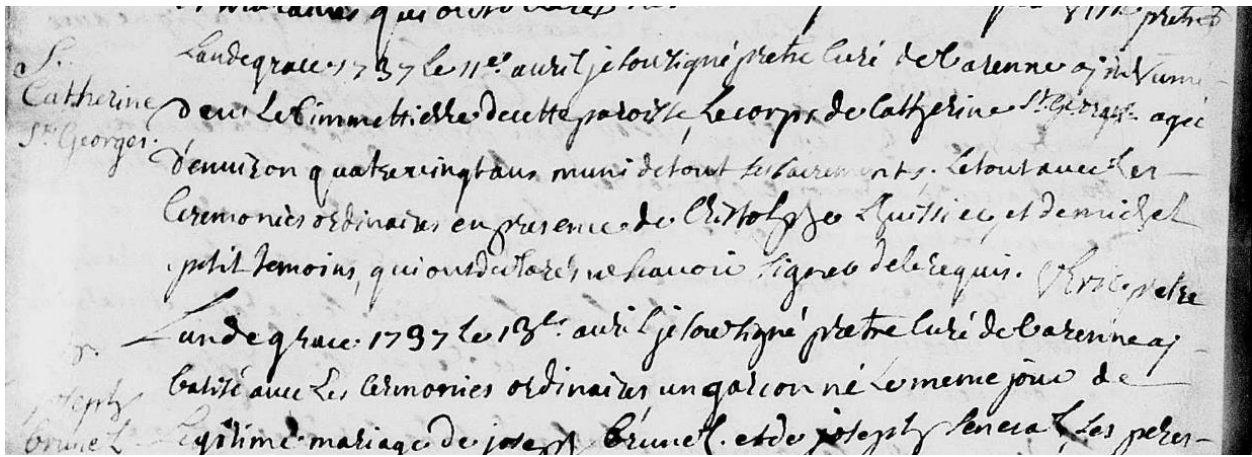 S.
Catherine
St Georges.
Landegrace 1737 le 11e avril je sousigné pretre curé de Varenne aj inhumé
dans le Cimmettierre de cette paroisse, le corps de Catherine St Georges agée
d'environ quatrevingt ans muni de tout ses sacrements. le tout avec les
Ceremonies ordinaires en presence de Christophe Lhuissier, et de michel
petit temoins, qui ont declarés ne scavoir signer de le requis. pretre
Landegrace 1737 le 13e avril je sousigné pretre curé de Varenne aj
batisé avec les Ceremonies ordinaires un garcon né le meme jour de
joseph
brunet
Legitime mariage de joseph brunet. et de joseph Senecal, les peres